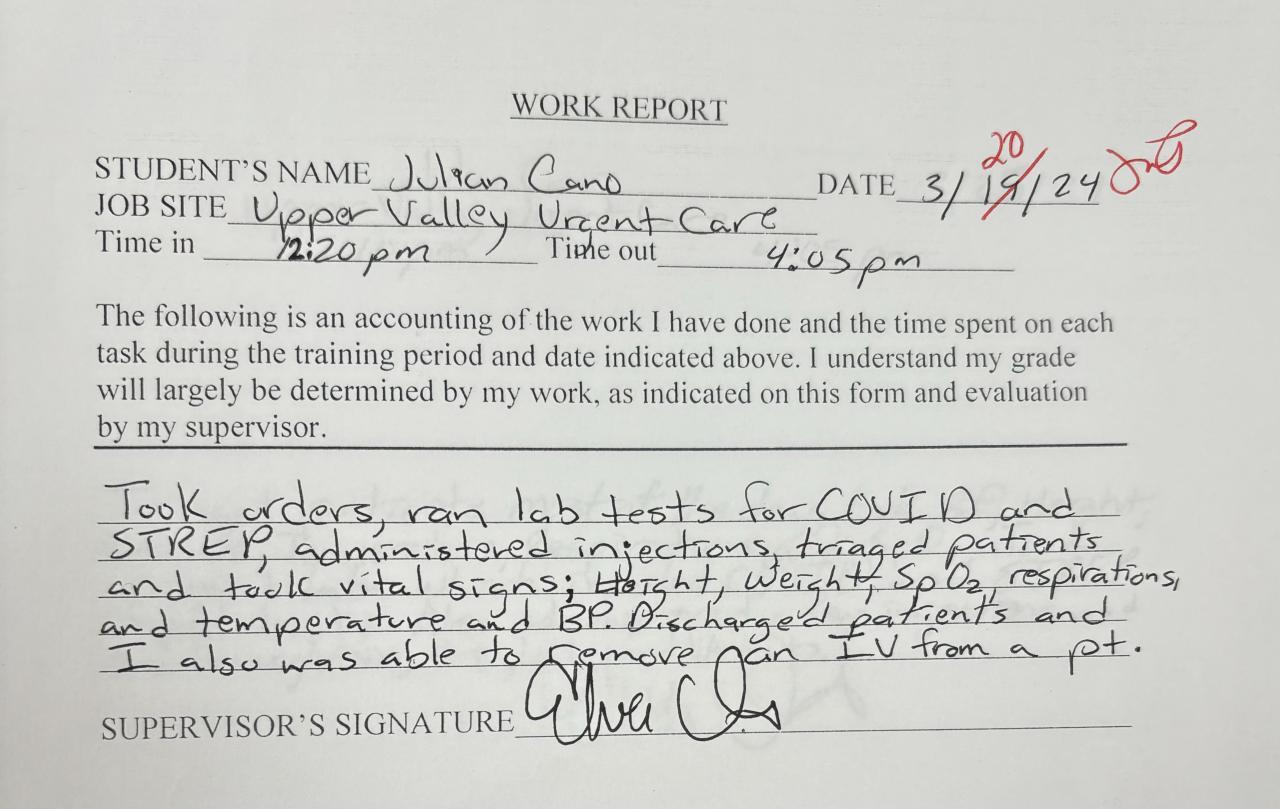 WORK REPORT
STUDENT'S NAME Julian Cano DATE 3/19/24 20
JOB SITE Upper Valley Urgent Care
Time in 12:20 pm Time out 4:05 pm
The following is an accounting of the work I have done and the time spent on each
task during the training period and date indicated above. I understand my grade
will largely be determined by my work, as indicated on this form and evaluation
by my supervisor.
Took orders, ran lab tests for COVID and
STREP, administered injections, triaged patients
and took vital signs; Height, Weight, SpO2, respirations,
and temperature and BP. Discharged patients and
I also was able to remove an IV from a pt.
SUPERVISOR'S SIGNATURE